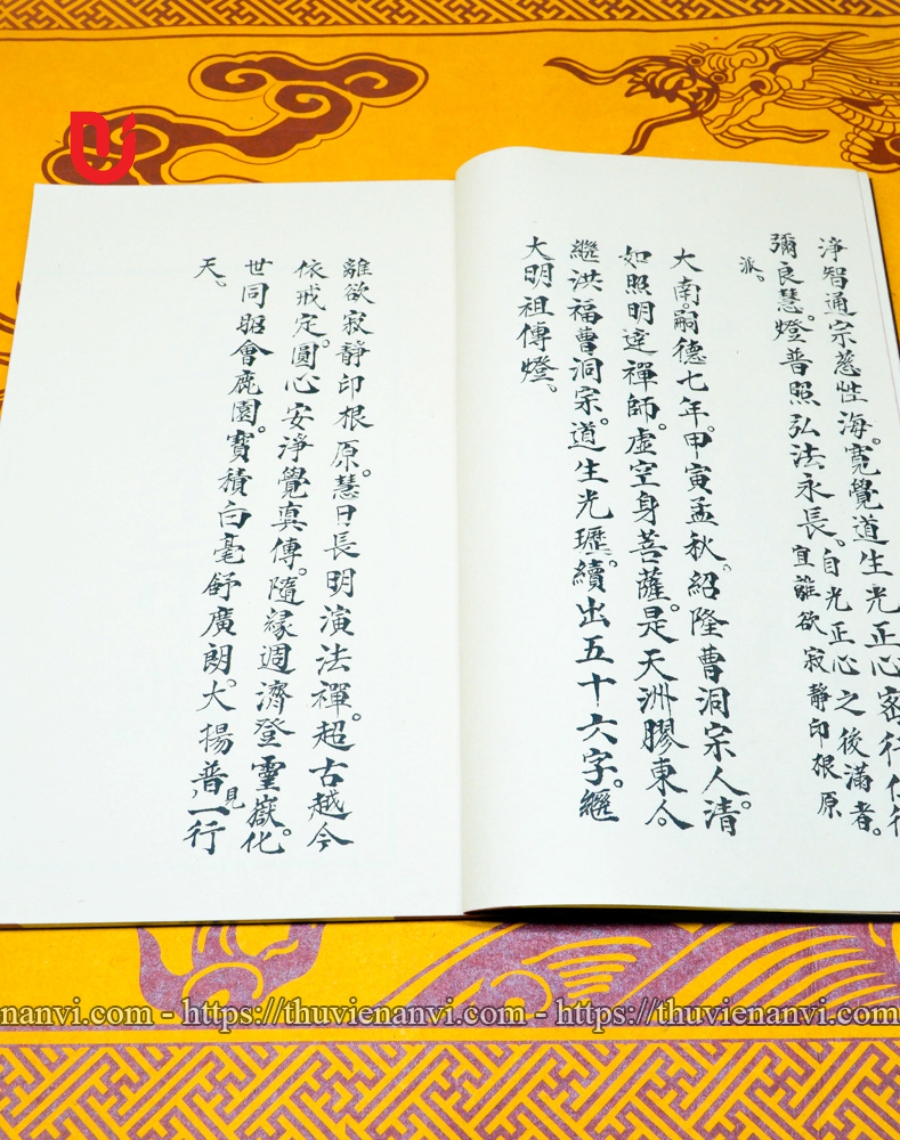 淨智通宗慈性海。寬覺道生光正心密行
彌良慧。燈普照弘法永長。自光正心之後滿者。
宜離欲寂靜印根原
派。
大南。嗣德七年。甲寅孟秋。紹隆曹洞宗人清。
如照明達禪師。虛空身菩薩。是天洲膠東人。
繼洪福曹洞宗。道生光瓑。續出五十六字。繼
大明祖傳燈。
離欲寂靜印根原。慧日長明演法禪。超古越今
依戒定。圓心安淨覺真傳。隨緣週濟登靈嶽。化
世同昭會鹿園。寶積白毫舒廣朗。大揚普見一行
天。
nanvi.com - https://thuvienanvi.com - https://thuvienanvi.com - https://thuvienan